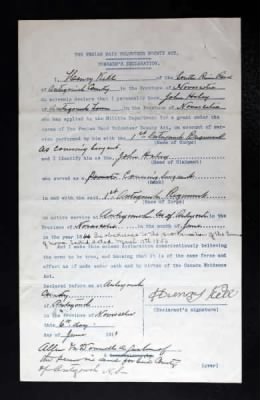 THE FENIAN RAID VOLUNTEER BOUNTY ACT.
COMRADE'S DECLARATION.
I, Henry of the South River Road
of Antigonish County in the Province of Novascotia
do solemnly declare that I personally know John
of Antigonish Town in the Province of Novascotia
who has applied to the Militia Department for a grant under the
terms of The Fenian Raid Volunteer Bounty Act, on account of ser-
vice performed by him with the 1st Antigonish Regiment
(Name of Corps)
as Sergeant
and I identify him as the John
(Name of Claimant)
who served as a Sergeant
(Rank)
in and with the said 1st Antigonish Regiment
(Name of Corps)
on active service at Antigonish
Novascotia in the month of June
in the year 18
of
And I make this solemn declaration conscientiously believing
the same to be true, and knowing that it is of the same force and
effect as if made under oath and by virtue of the Canada Evidence
Act.
Declared before me at Antigonish
County
of Antigonish
in the Province of Novascotia
this 6th day
of June 191
(Declarant's signature)
a
the Peace in and for said County
of Antigonish N.S.
(over)